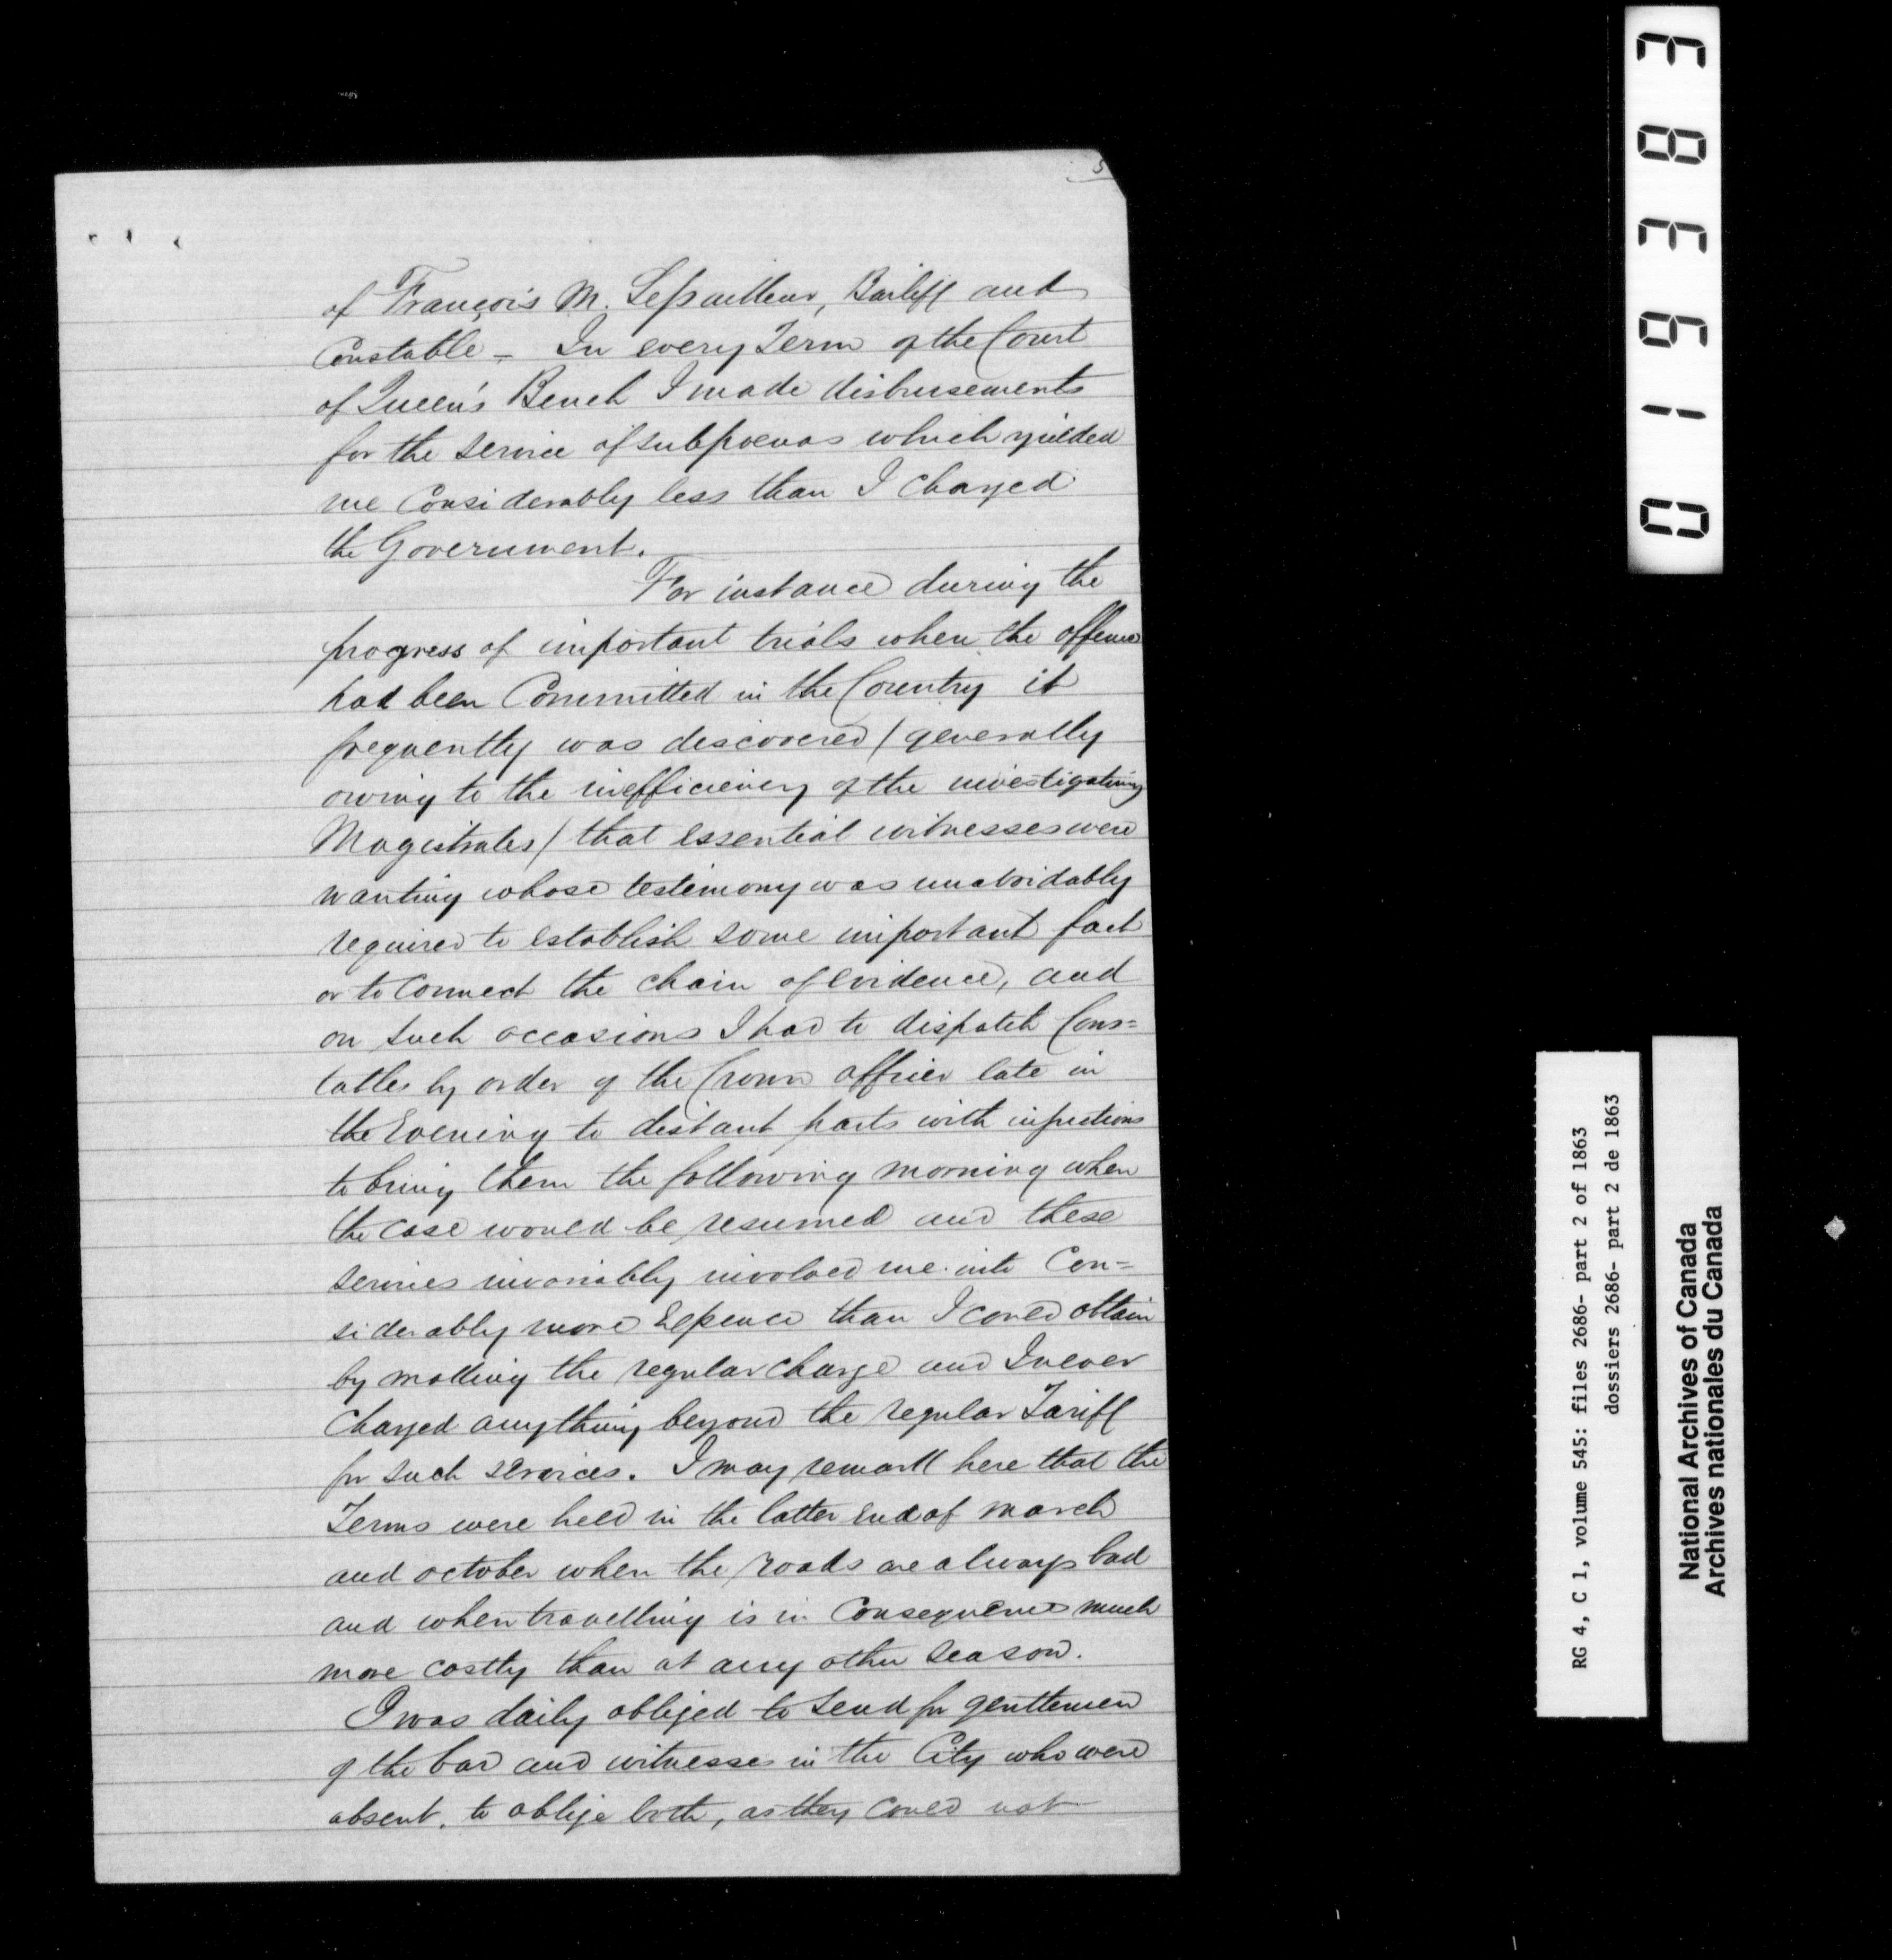 5
of François M. Lepailleur, Bailiff and
Constable _ In every Term of the Court
of Queen's Bench I made disbursements
for the service of subpoenas which yielded
me Considerably less than I charged
the Government.
For instance during the
progress of important trials when the offence
had been Committed in the Country it
frequently was discovered / generally
owing to the inefficiency of the investigating
Magistrates / that essential witnesses were
wanting whose testimony was unavoidably
required to establish some important fact
or to Connect the chain of Evidence, and
on such occasions I had to dispatch Cons=
tables by order of the Crown officer late in
the Evening to distant parts with
to bring them the following morning when
the case would be resumed and these
services invariably involved me into Con=
siderably more Expence than I could obtain
by making the regular charge and I never
Charged anything beyond the regular Tariff
for such services. I may remark here that the
Terms were held in the latter End of march
and october when the roads are always bad
and when travelling is in Consequence much
more costly than at any other season.
I was daily obliged to send for gentlemen
of the bar and witnesses in the City who were
absent, to oblige both, as they Could not
019383
RG 4, C 1, volume 545: files 2686- part 2 of 1863
dossiers 2686- part 2 de 1863
National Archives of Canada
Archives nationales du Canada